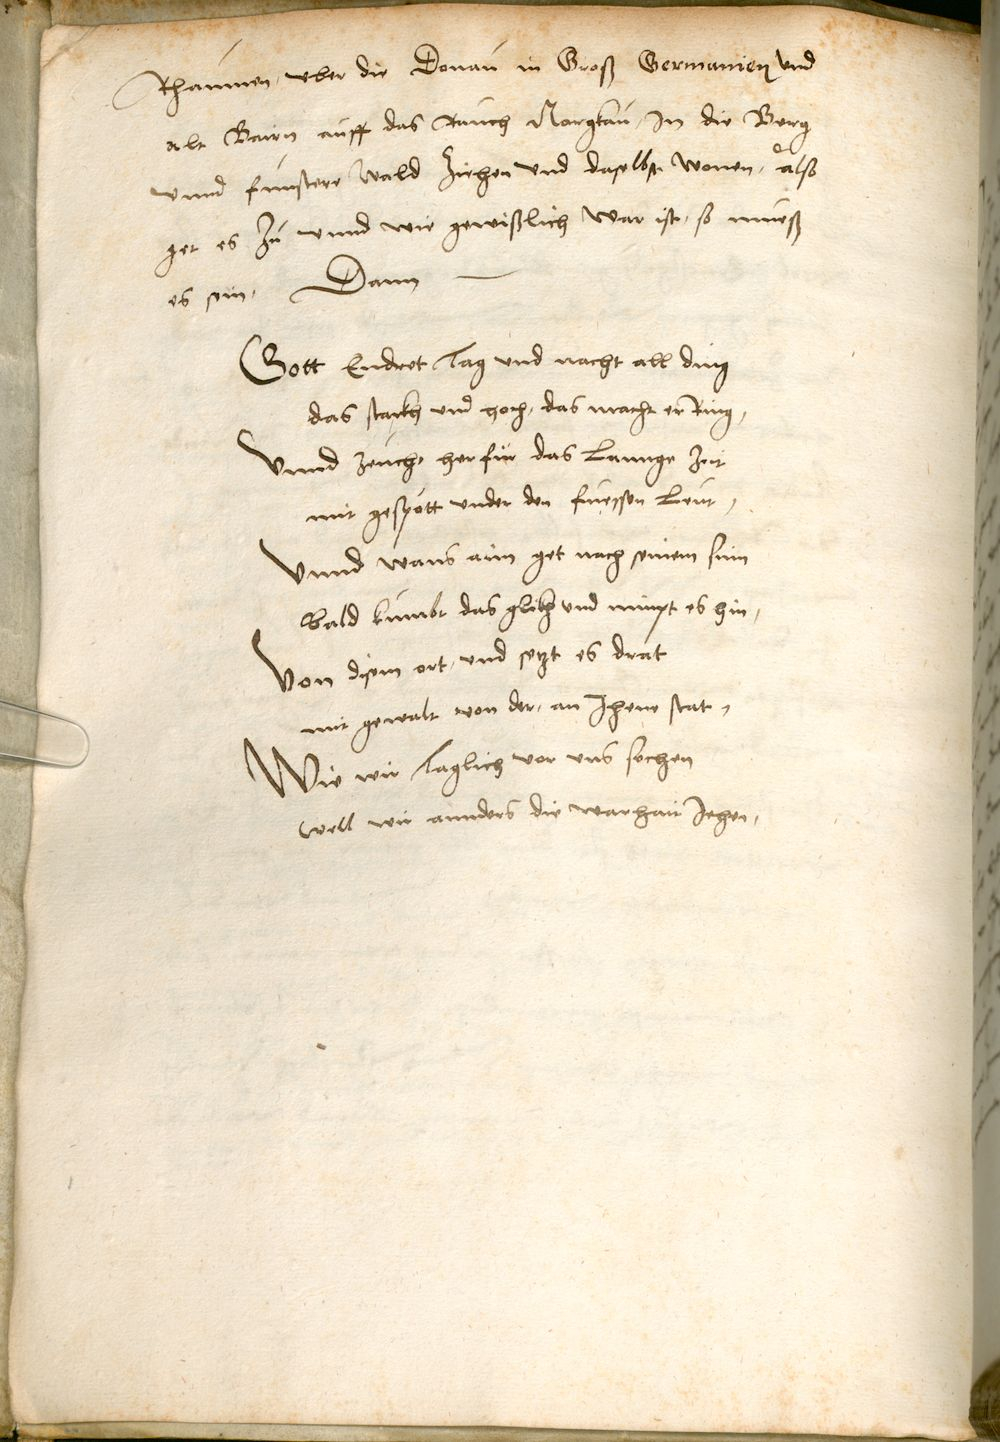 Rhaumen, vber die Donau in Groß Germanien vnd
alt Bairn auff das Rauch Norgkau, In die Berg
vnnd finnstere Wald Ziehen vnd daselbst Wonen, Also
get es Zu vnnd wie gewißlich War ist, so mueß
es sein, Dann
Gott Endret Tag vnd nacht all ding
das starkh vnd hoch, das macht er Ring,
Vnnd zeucht herfür das Lannge Zeit
mit gespött vnder den fuessen Leut,
Vnnd wans aim get nach seinem sinn
Bald kumbt das glikh vnd nimpt es hin,
Von disem ort, vnd setzt es drat
mit gewalt von der, an Jhene stat,
Wie wir Taglich vor vns sechen
well wir annders die warhait Jehen,